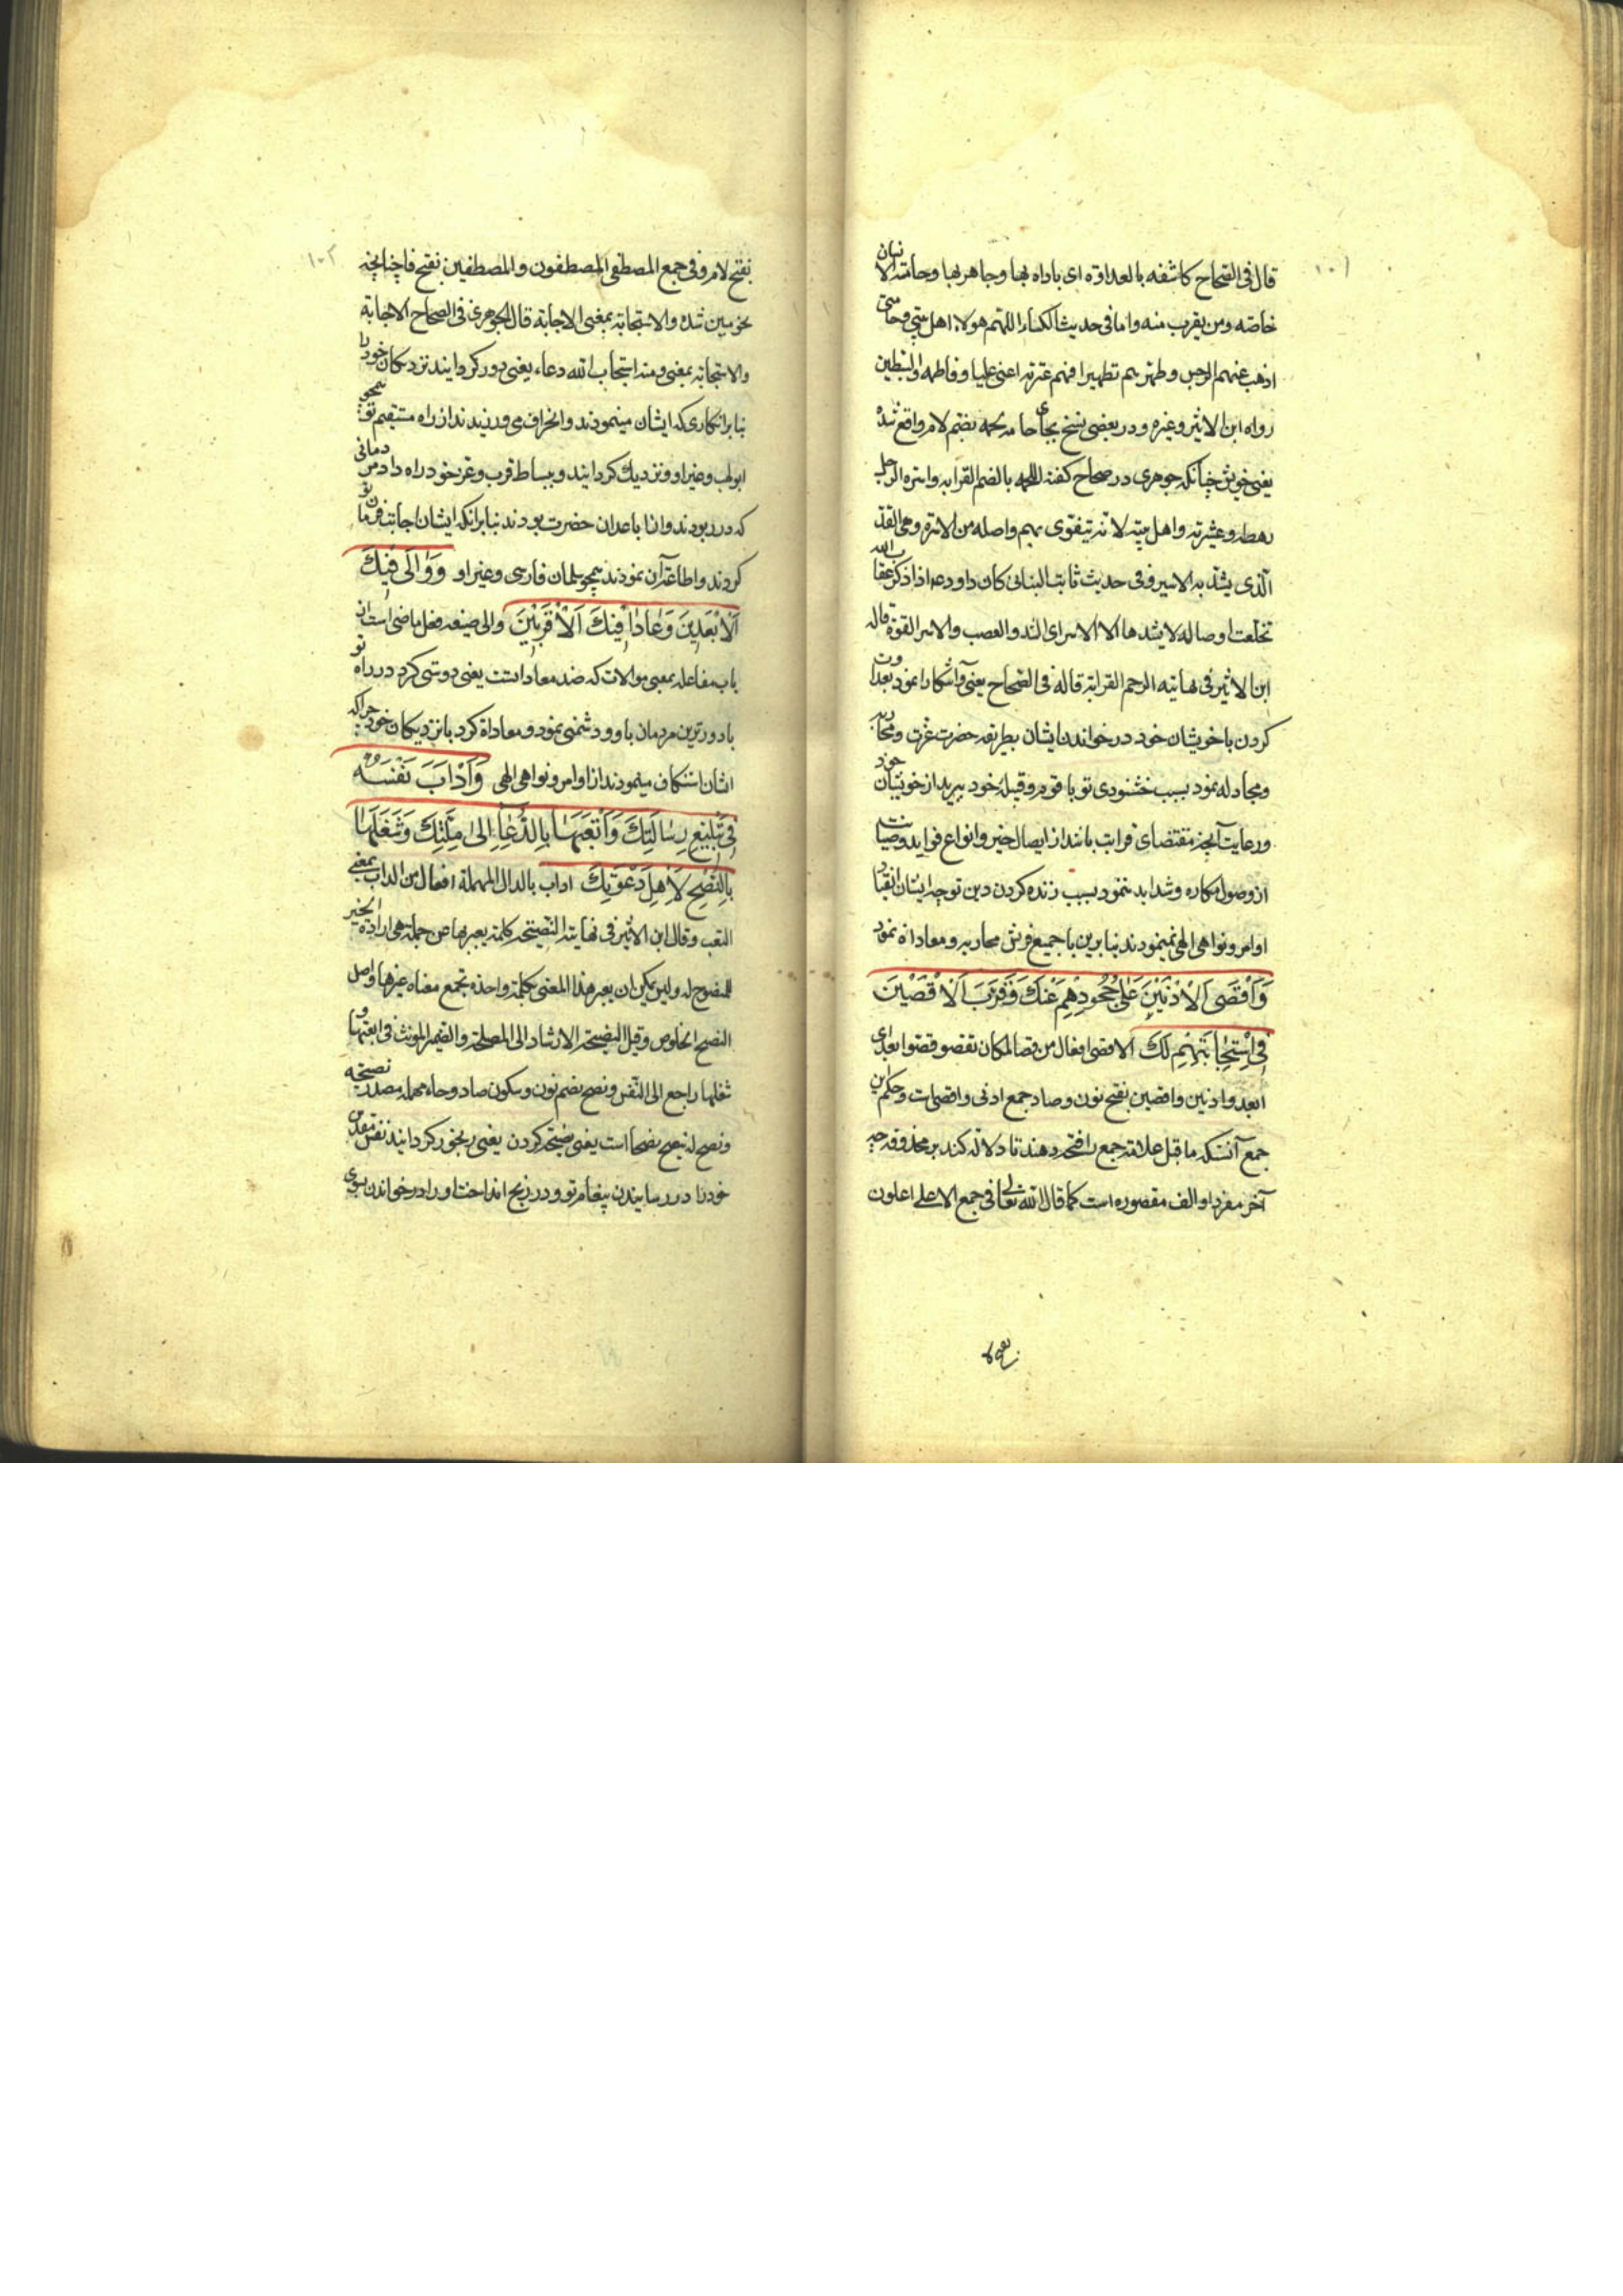 ۱۰۱
قال فی الصحاح کاشفه بالعداوة ای باداه بها و جاهر بها و حامته الانسان
خاصته ومن یقرب منه واما فی حدیث الکساء اللهم هولاء اهل بیتی وحامتی
اذهب عنهم الرجس وطهرهم تطهیرا فهم عترته اعنی علیا وفاطمه والسبطین
رواه ابن الاثیر وغیره و در بعضی نسخ بجای حامه لحمه بضم لام واقع شده
یعنی خویش چنانکه جوهری در صحاح کفته اللحمه بالضم القرابه واسره الرجل
رهطه وعشیرته واهل بیته لانه یتقوی بهم واصله من الاسره وهی القد
الذی یشد به الاسیر وفی حدیث ثابت البنانی کان داود ع اذا ذکر عقاب الله
تخلعت اوصاله لا یشدها الا الاسر ای الشد والعصب والاسر القوة قاله
ابن الاثیر فی نهایته الرحم القرابة قاله فی الصحاح یعنی و آشکارا نمود عداوت
کردن با خویشان خود در خواندن ایشان بطریقه حضرت عزت و محاربه
ومجادله نمود بسبب خشنودی تو با قوم و قبیله خود و ببرید از خویشان خود
ورعایت آنچه مقتضای قرابت باشد از ایصال خیر و انواع فواید و صیانت
از وصول مکاره و شداید ننمود بسبب زنده کردن دین تو چه ایشان انقیاد
اوامر و نواهی الهی نمینمودند بنابرین با جمیع قریش محاربه و معاداة نمود
وَاَقْصَی الْاَدْنَیْنَ عَلیٰ جُحُودِهِمْ عَنْکَ وَقَرَّبَ الْاَقْصَیْنَ
فِی اسْتِجابَتِهِمْ لَکَ الاقصی افعال من قصا المکان تقصو قصوا بعد ای
ابعد وادنین واقصین بفتح نون و صاد جمع ادنی و اقصی است و حکم این
جمع آنست که ما قبل علامة جمع را فتحه دهند تا دلالة کند بر محذوف چه
آخر مفرد او الف مقصوره است کما قال الله تعالی فی جمع الاعلی اعلون
بفتح لا
۱۰۲
بفتح لام و فی جمع المصطفی المصطفون و المصطفین بفتح فا چنانچه
در نحو مبین شده والاستجابة بمعنی الاجابة قال الجوهری فی الصحاح الاجابة
والاستجابة بمعنی ومنه استجاب الله دعاء یعنی دور کردانید نزدیکان خود را
بنابر انکاری که ایشان مینمودند و انحراف می ورزیدند از راه مستقیم تو همچو
ابولهب و غیر او و نزدیک کردانید و ببساط قرب و عز خود راه داد مردمانی
که دور بودند و از اباعد ان حضرت بودند بنابر انکه ایشان اجابت فرمان تو
کردند و اطاعت آن نمودند همچو سلمان فارسی و غیر او وَوٰالیٰ فیکَ
الْاَبْعَدِینَ وَعٰادیٰ فِیکَ الْاَقْرَبِینَ والی صیغه فعل ماضی است از
باب مفاعله بمعنی موالات که ضد معاداتست یعنی دوستی کرد در راه تو
با دورترین مردمان باو و دشمنی نمود و معاداة کرد با نزدیکان خود چرا که
ایشان استنکاف مینمودند از اوامر و نواهی الهی وَاَدْاَبَ نَفْسَهُ
فی تَبْلیغِ رِسٰالَتِکَ وَاَتْعَبَهٰا بِالدُّعٰاءِ اِلیٰ مِلَّتِکَ وَشَغَلَهٰا
بِالنُّصْحِ لِاَهْلِ دَعْوَتِکَ اداب بالدال المهملة افعال من الداب بمعنی
التعب و قال ابن الاثیر فی نهایته النصیحة کلمة یعبر بها عن جملة هی ارادة الخیر
للمنصوح له ولیس یمکن ان یعبر هذا المعنی بکلمة واحدة تجمع معناه غیرها واصل
النصح الخلوص وقیل النصیحة الارشاد الی المصلحة والضمیر المونث فی اتعبها و
شغلها راجع الی النفس و نصح بضم نون و سکون صاد و حاء مهمله مصدر نصحه
و نصح له ینصح نصحا است یعنی نصیحة کردن یعنی رنجور کردانید نفس مقدس
خود را در رسانیدن پیغام تو و در رنج انداخت او را در خواندن بسوی